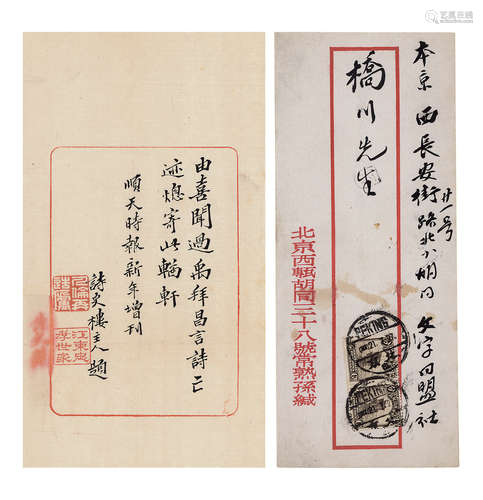 本京 西長安街路北小胡同廿一号 文字同盟社
橋川先生
北京西甎胡同二十八號常熟孫緘
PEKING
PEKING
由喜聞過禹拜昌言詩亡
迹熄寄此輶軒
順天時報新年增刊
詩史樓主人題
江東忠
世家
艺狐在线